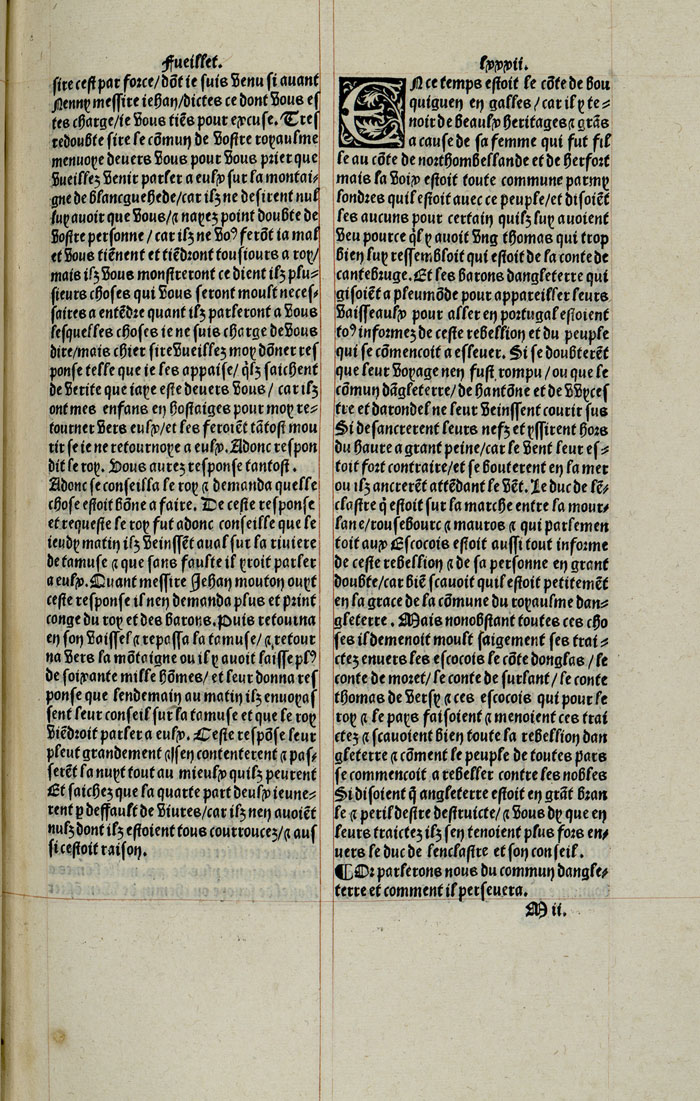 Fueillet.
sire cest par force/dõt ie suis venu si auant
Nenny messire iehan/dictes ce dont vous es
tes charge/ie vous tiẽs pour excuse. Tres
redoubte sire le cõmun de vostre royaulme
menuoye deuers vous pour vous prier que
vueillez venir parler a eulx sur la montai⸗
gne de blancquehede/car ilz ne desirent nul
luy auoir que vous/⁊ nayez point doubte de
vostre personne/car ilz ne voꝰ ferõt ia mal
et vous tiẽnent et tiẽdront tousiours a roy/
mais ilz vous monstreront ce dient ilz plu⸗
sieurs choses qui vous seront moult neces⸗
saires a entẽdre quant ilz parleront a vous
lesquelles choses ie ne suis charge de vous
dire/mais chier sire vueillez moy dõner res
ponse telle que ie les appaise/ q̃lz saichent
de verite que iaye este deuers vous/ car ilz
ont mes enfans en hostaiges pour moy re⸗
tourner vers eulx/et les feroiẽt tãtost mou
rir se ie ne retournoye a eulx. Adonc respon
dit le roy. Vous aurez response tantost.
Adonc se conseilla le roy ⁊ demanda quelle
chose estoit bõne a faire. De ceste response
et requeste le roy fut adonc conseille que le
ieudy matin ilz veinssẽt aual sur la riuiere
de tamuse ⁊ que sans faulte il yroit parler
a eulx. Quant messire Jehan mouton ouyt
ceste response il nen demanda plus et print
conge du roy et des barons. Puis retourna
en son vaissel ⁊ repassa la tamuse/ ⁊ retour
na vers la mõtaigne ou il y auoit laisse plꝰ
de soixante mille hõmes/ et leur donna res
ponse que lendemain au matin ilz enuoyas
sent leur conseil sur la tamuse et que le roy
viẽdroit parler a eulx. Ceste respõse leur
pleut grandement ⁊ sen contenterent ⁊ pas⸗
serẽt la nuyt tout au mieulx quilz peurent
Et saichez que la quarte part deulx ieune⸗
rent p deffault de viures/car ilz nen auoiẽt
nulz dont ilz estoient tous courroucez/⁊ aus
si cestoit raison.
lxxxii.
EN ce temps estoit le cõte de bou
quiguen en galles/car il y te⸗
noit de beaulx heritages ⁊ grãs
a cause de sa femme qui fut fil
le au cõte de northombellande et de herfort
mais la voix estoit toute commune parmy
londres quil estoit auec ce peuple/et disoiẽt
les aucuns pour certain quilz luy auoient
veu pource q̃l y auoit vng thomas qui trop
bien luy ressembloit qui estoit de la conte de
cantebruge. Et les barons dangleterre qui
gisoiẽt a pleumõde pour appareiller leurs
vaisseaulx pour aller en portugal estoient
toꝰ informez de ceste rebellion et du peuple
qui se cõmencoit a esleuer. Si se doubterẽt
que leur voyage nen fust rompu/ou que le
cõmun dãgleterre/de hantõne et de wyces
tre et darondel ne leur veinssent courir sus
Si desancrerent leurs nefz et yssirent hors
du haure a grant peine/car le vent leur es⸗
toit fort contraire/et se bouterent en la mer
ou ilz ancrerẽt attẽdant le vẽt. Le duc de lẽ⸗
clastre q̃ estoit sur la marche entre la mour⸗
lane/rousebourc ⁊ mauros ⁊ qui parlemen
toit aux Escocois estoit aussi tout informe
de ceste rebellion ⁊ de sa personne en grant
doubte/car biẽ scauoit quil estoit petitemẽt
en la grace de la cõmune du royaulme dan⸗
gleterre. Mais nonobstant toutes ces cho
ses il demenoit moult saigement ses trai⸗
ctez enuers les escocois le cõte donglas/ le
conte de moret/le conte de surlant/ le conte
thomas de versy ⁊ ces escocois qui pour le
roy ⁊ le pays faisoient ⁊ menoient ces trai
ctez ⁊ scauoient bien toute la rebellion dan
gleterre ⁊ cõment le peuple de toutes pars
se commencoit a rebeller contre les nobles
Si disoient q̃ angleterre estoit en grãt bran
le ⁊ peril destre destruicte/⁊ vous dy que en
leurs traictez ilz sen tenoient plus fors en⸗
uers le duc de lenclastre et son conseil.
¶Or parlerons nous du commun dangle⸗
terre et comment il perseuera.
M ii.